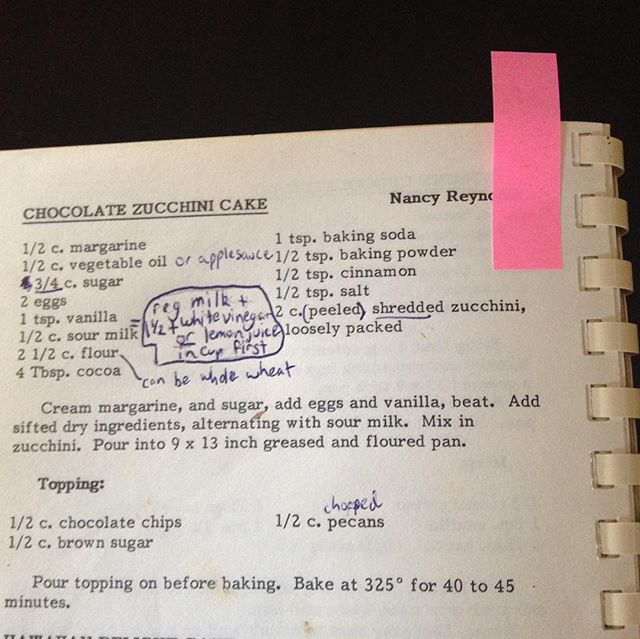 CHOCOLATE ZUCCHINI CAKE
Nancy Reyno
1/2 c. margarine
1/2 c. vegetable oil or applesauce
3/4 c. sugar
2 eggs
1 tsp. vanilla
1/2 c. sour milk
= reg milk +
1 1/2 t white vinegar
or lemon juice
in cup first
2 1/2 c. flour
can be whole wheat
4 Tbsp. cocoa
1 tsp. baking soda
1/2 tsp. baking powder
1/2 tsp. cinnamon
1/2 tsp. salt
2 c. (peeled) shredded zucchini,
loosely packed
Cream margarine, and sugar, add eggs and vanilla, beat. Add
sifted dry ingredients, alternating with sour milk. Mix in
zucchini. Pour into 9 x 13 inch greased and floured pan.
Topping:
1/2 c. chocolate chips
1/2 c. brown sugar
chopped
1/2 c. pecans
Pour topping on before baking. Bake at 325° for 40 to 45
minutes.